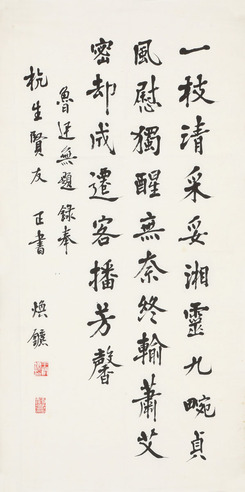 一枝清采妥湘靈九畹貞
風慰獨醒無奈終輸蕭艾
密却成遷客播芳馨
魯迅無題錄奉
杭生賢友 正書
煥鑣